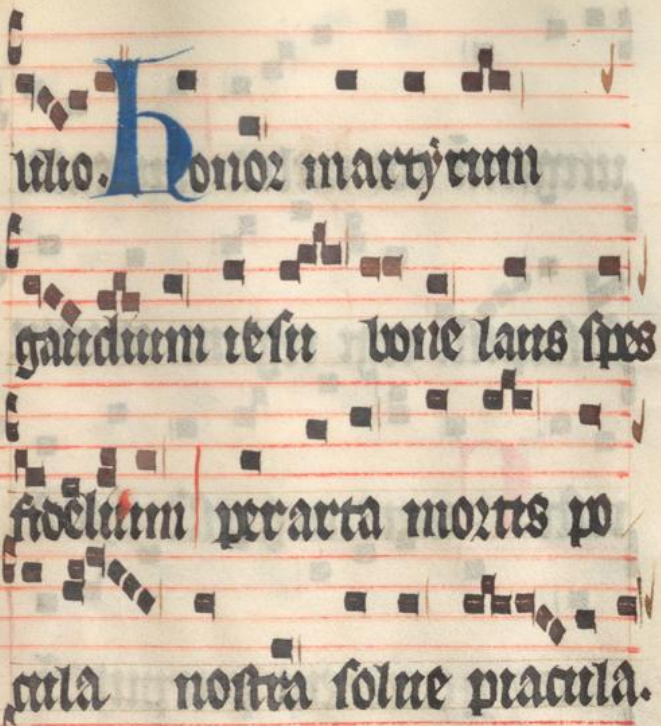 ulio. Honor martÿrum
gaudium iesu bone laus spes
fidelium per arta mortis po
cula nostra solue piacula.